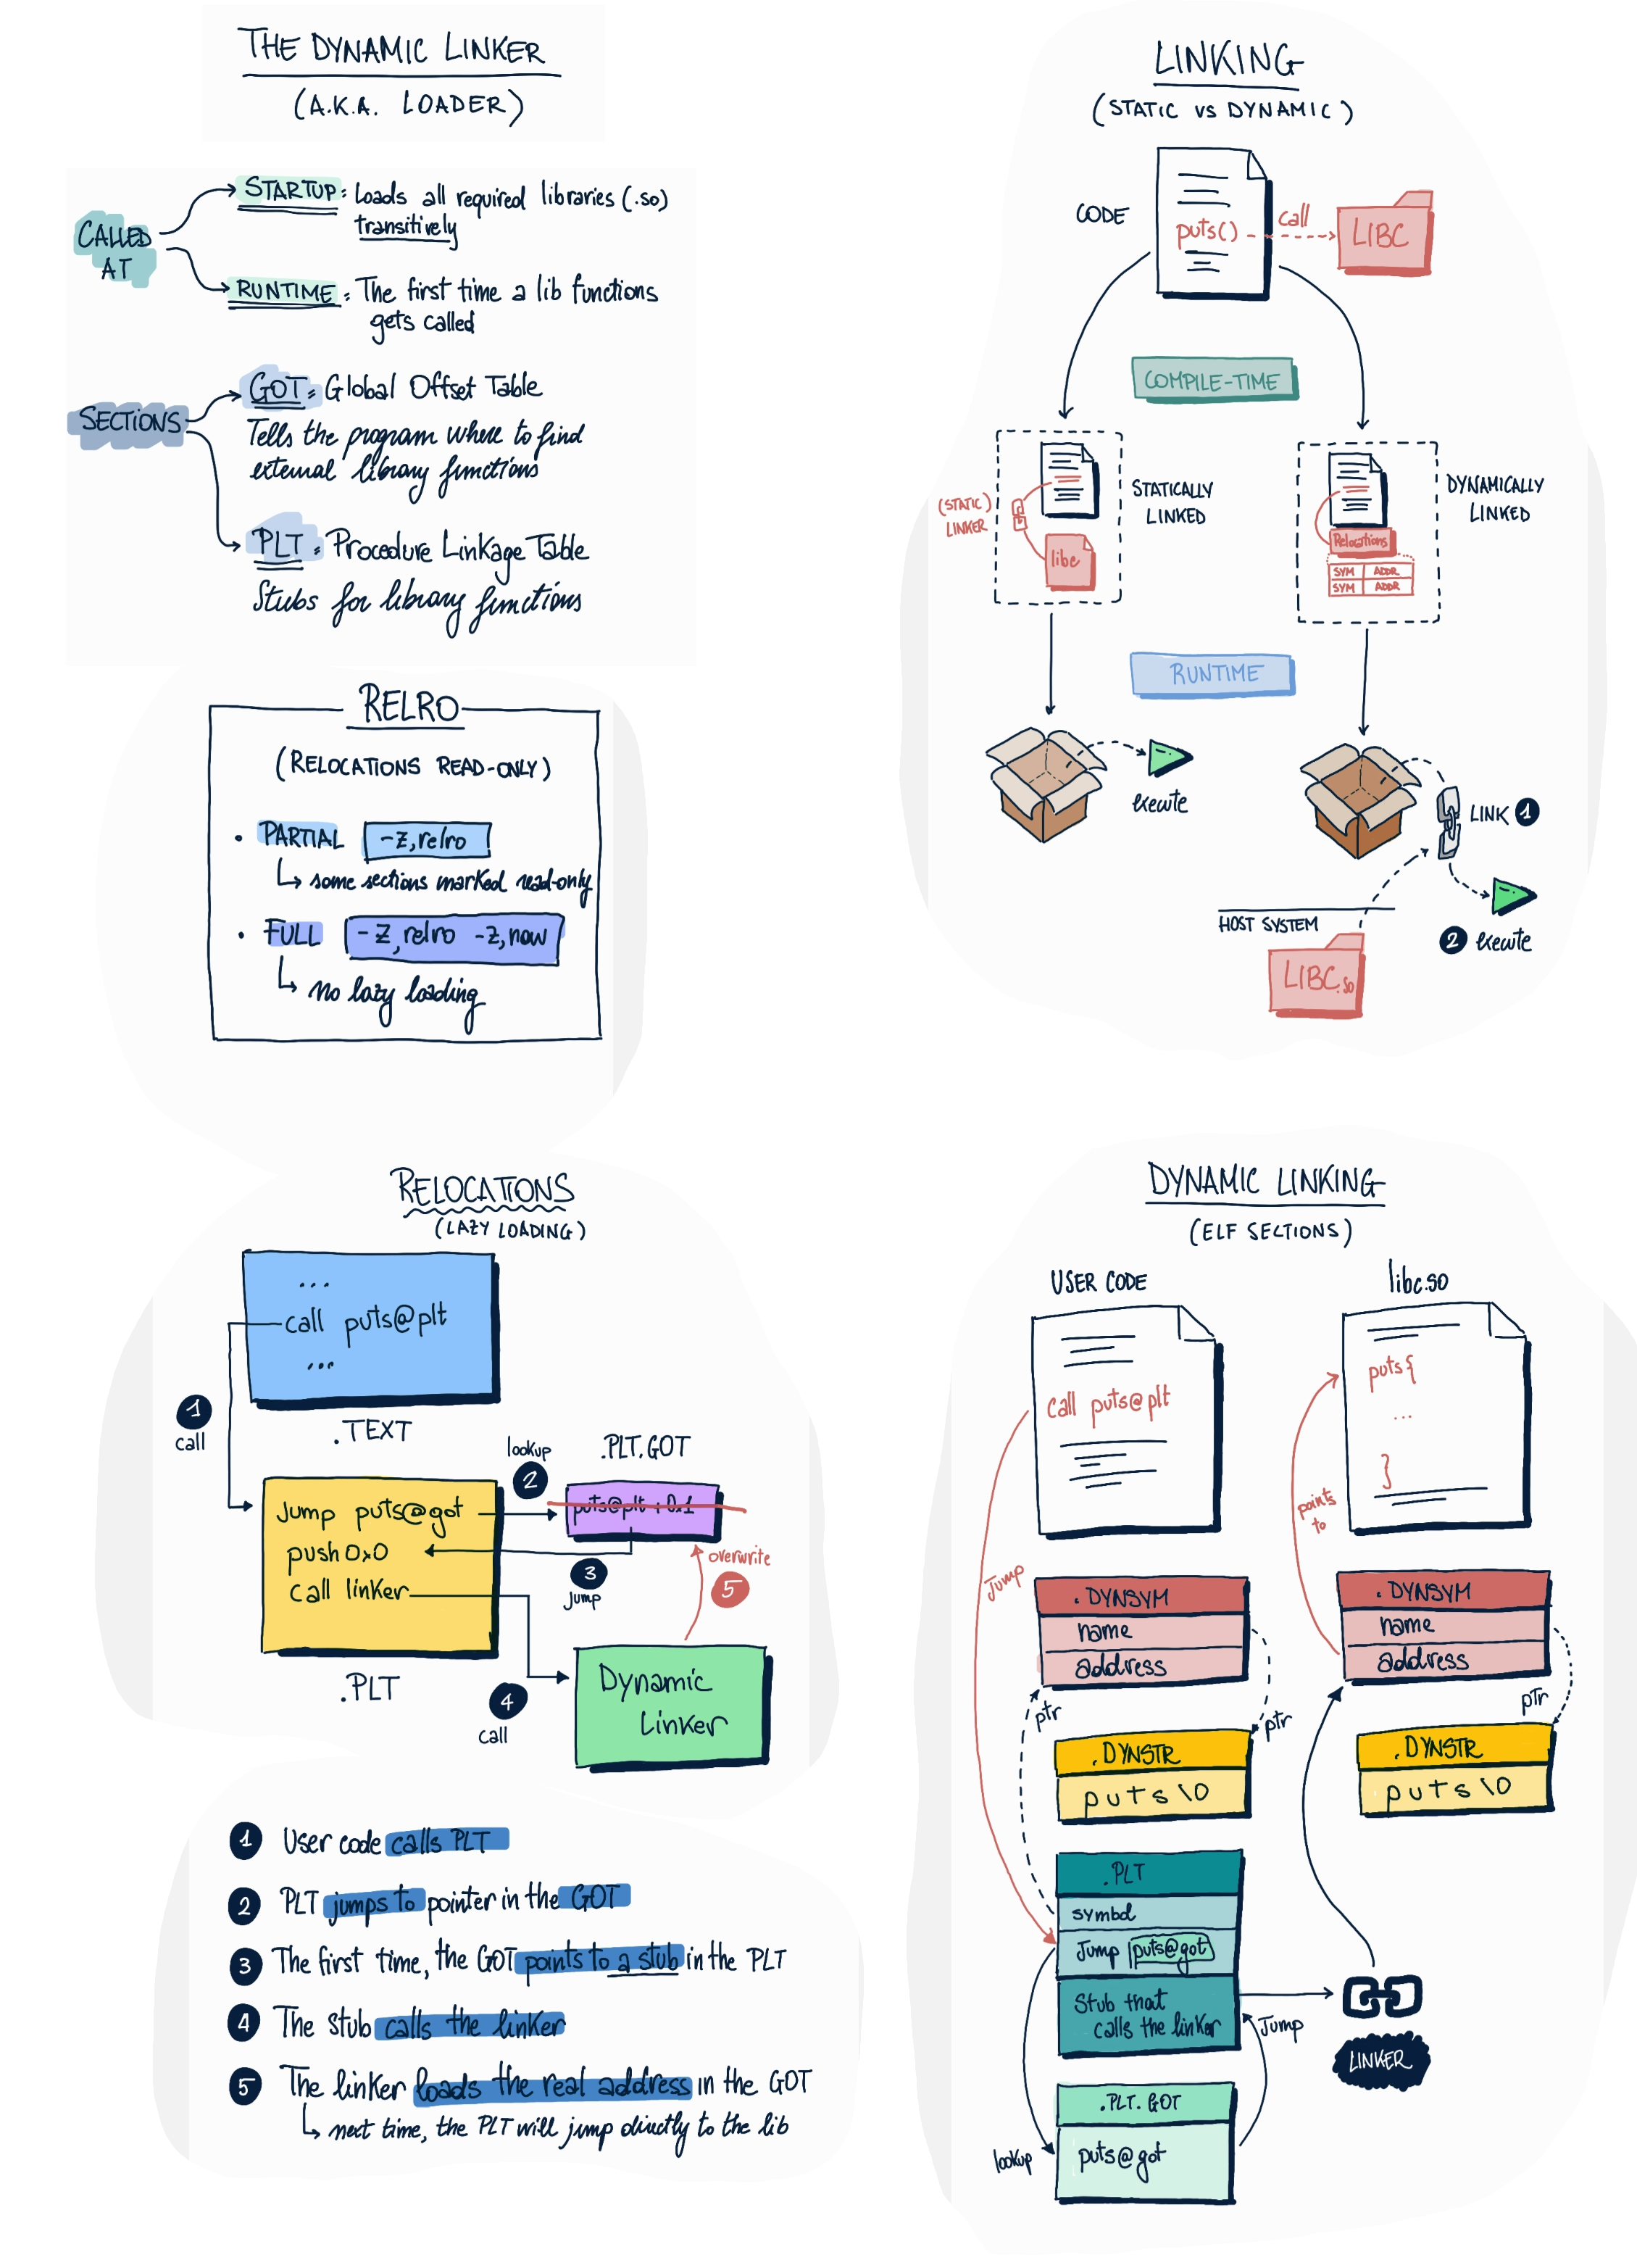 THE DYNAMIC LINKER
(A.K.A. LOADER)
CALLED
AT
STARTUP: Loads all required libraries (.so)
transitively
RUNTIME: The first time a lib functions
gets called
SECTIONS
GOT: Global Offset Table
Tells the program where to find
external library functions
PLT: Procedure Linkage Table
Stubs for library functions
RELRO
(RELOCATIONS READ-ONLY)
• PARTIAL -z,relro
some sections marked read-only
• FULL -z,relro -z,now
No lazy loading
LINKING
(STATIC VS DYNAMIC)
CODE
puts()
call
LIBC
COMPILE-TIME
(STATIC)
LINKER
libc
STATICALLY
LINKED
Relocations
SYM ADDR
SYM ADDR
DYNAMICALLY
LINKED
RUNTIME
execute
LINK 1
HOST SYSTEM
2 execute
LIBC.so
RELOCATIONS
(LAZY LOADING)
...
call puts@plt
...
.TEXT
1
call
lookup
2
.PLT.GOT
Jump puts@got
push 0x0
call linker
puts@plt+0x1
3
Jump
overwrite
5
.PLT
4
call
Dynamic
Linker
1 User code calls PLT
2 PLT jumps to pointer in the GOT
3 The first time, the GOT points to a stub in the PLT
4 The stub calls the linker
5 The linker loads the real address in the GOT
next time, the PLT will jump directly to the lib
DYNAMIC LINKING
(ELF SECTIONS)
USER CODE
call puts@plt
libc.so
puts{
...
}
Jump
points
to
.DYNSYM
name
address
ptr
ptr
.DYNSTR
puts\0
.DYNSYM
name
address
ptr
.DYNSTR
puts\0
.PLT
symbol
Jump puts@got
Stub that
calls the linker
Jump
LINKER
.PLT.GOT
lookup
puts@got